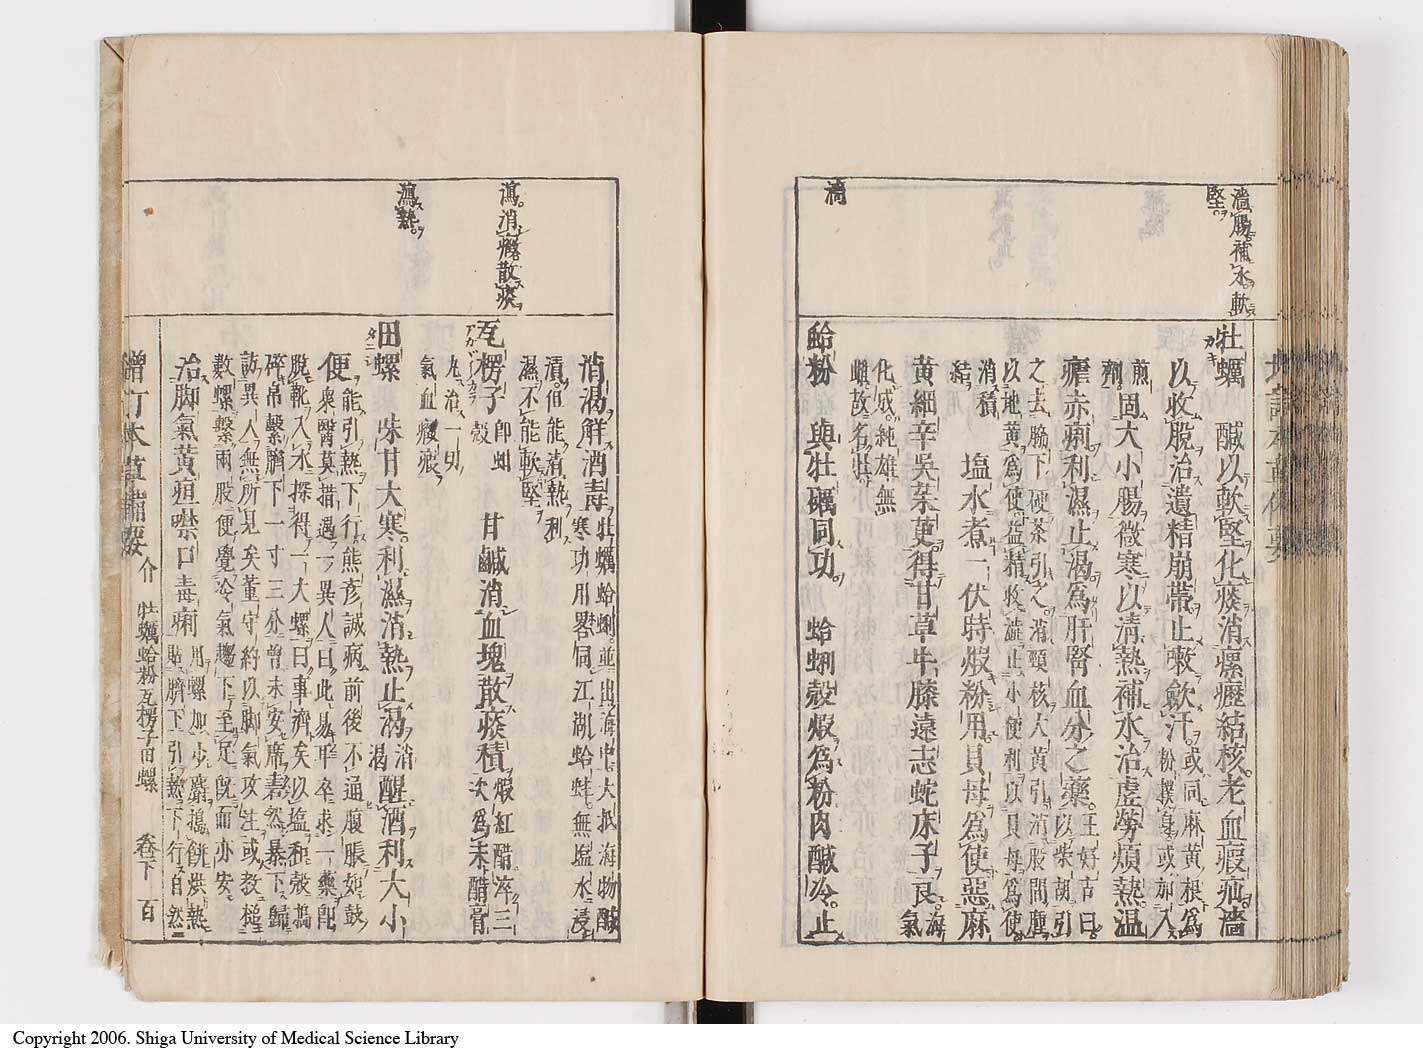 濇腸補水軟
堅
牡蠣 鹹以軟堅化痰消瘰癧結核老血瘕疝濇
以收脫治遺精崩帶止嗽斂汗或同麻黃根為
粉撲身或加入
煎
劑固大小腸微寒以清熱補水治虛勞煩熱温
瘧赤痢利濕止渴為肝腎血分之藥王好古曰
以柴胡引
之去脇下硬茶引之消頸核大黃引消股間腫
以地黃為使益精收澁止小便利以貝母為使
消積
結
塩水煮一伏時煆粉用貝母為使惡麻
黃細辛吳茱萸得甘草牛膝遠志蛇床子良海
氣
化成純雄無
蠣故名牡
濇
蛤粉 與牡礪同功 蛤蜊殼煆為粉肉鹹冷止
消渴解酒毒牡蠣蛤蜊並出海中大抵海物鹹
寒功用畧同江湖蛤蚌無塩水浸
漬但能清熱利
濕不能軟堅
瀉消癥散痰
瓦楞子 即蚶
殼
甘鹹消血塊散痰積煆紅醋淬三
次為末醋膏
丸治一切
氣血癥瘕
瀉熱
田螺 味甘大寒利濕清熱止渴醒酒利大小
便能引熱下行熊彦誠病前後不通腹脹如鼓
衆醫莫措遇一異人曰此易耳卒求一藥即
脫靴入水探得一大螺曰事濟矣以塩和殼搗
碎帛繫臍下一寸三分曾未安席砉然暴下歸
訪異人無所見矣董守約以脚氣攻注或教槌
數螺繫兩股便覺冷氣趨下至足旣而亦安
治脚氣黃疸噤口毒痢用螺加少麝搗餅烘熱
貼臍下引熱下行自然
增訂本草備要 介 牡蠣蛤粉瓦楞子田螺 卷下 百
Copyright 2006. Shiga University of Medical Science Library